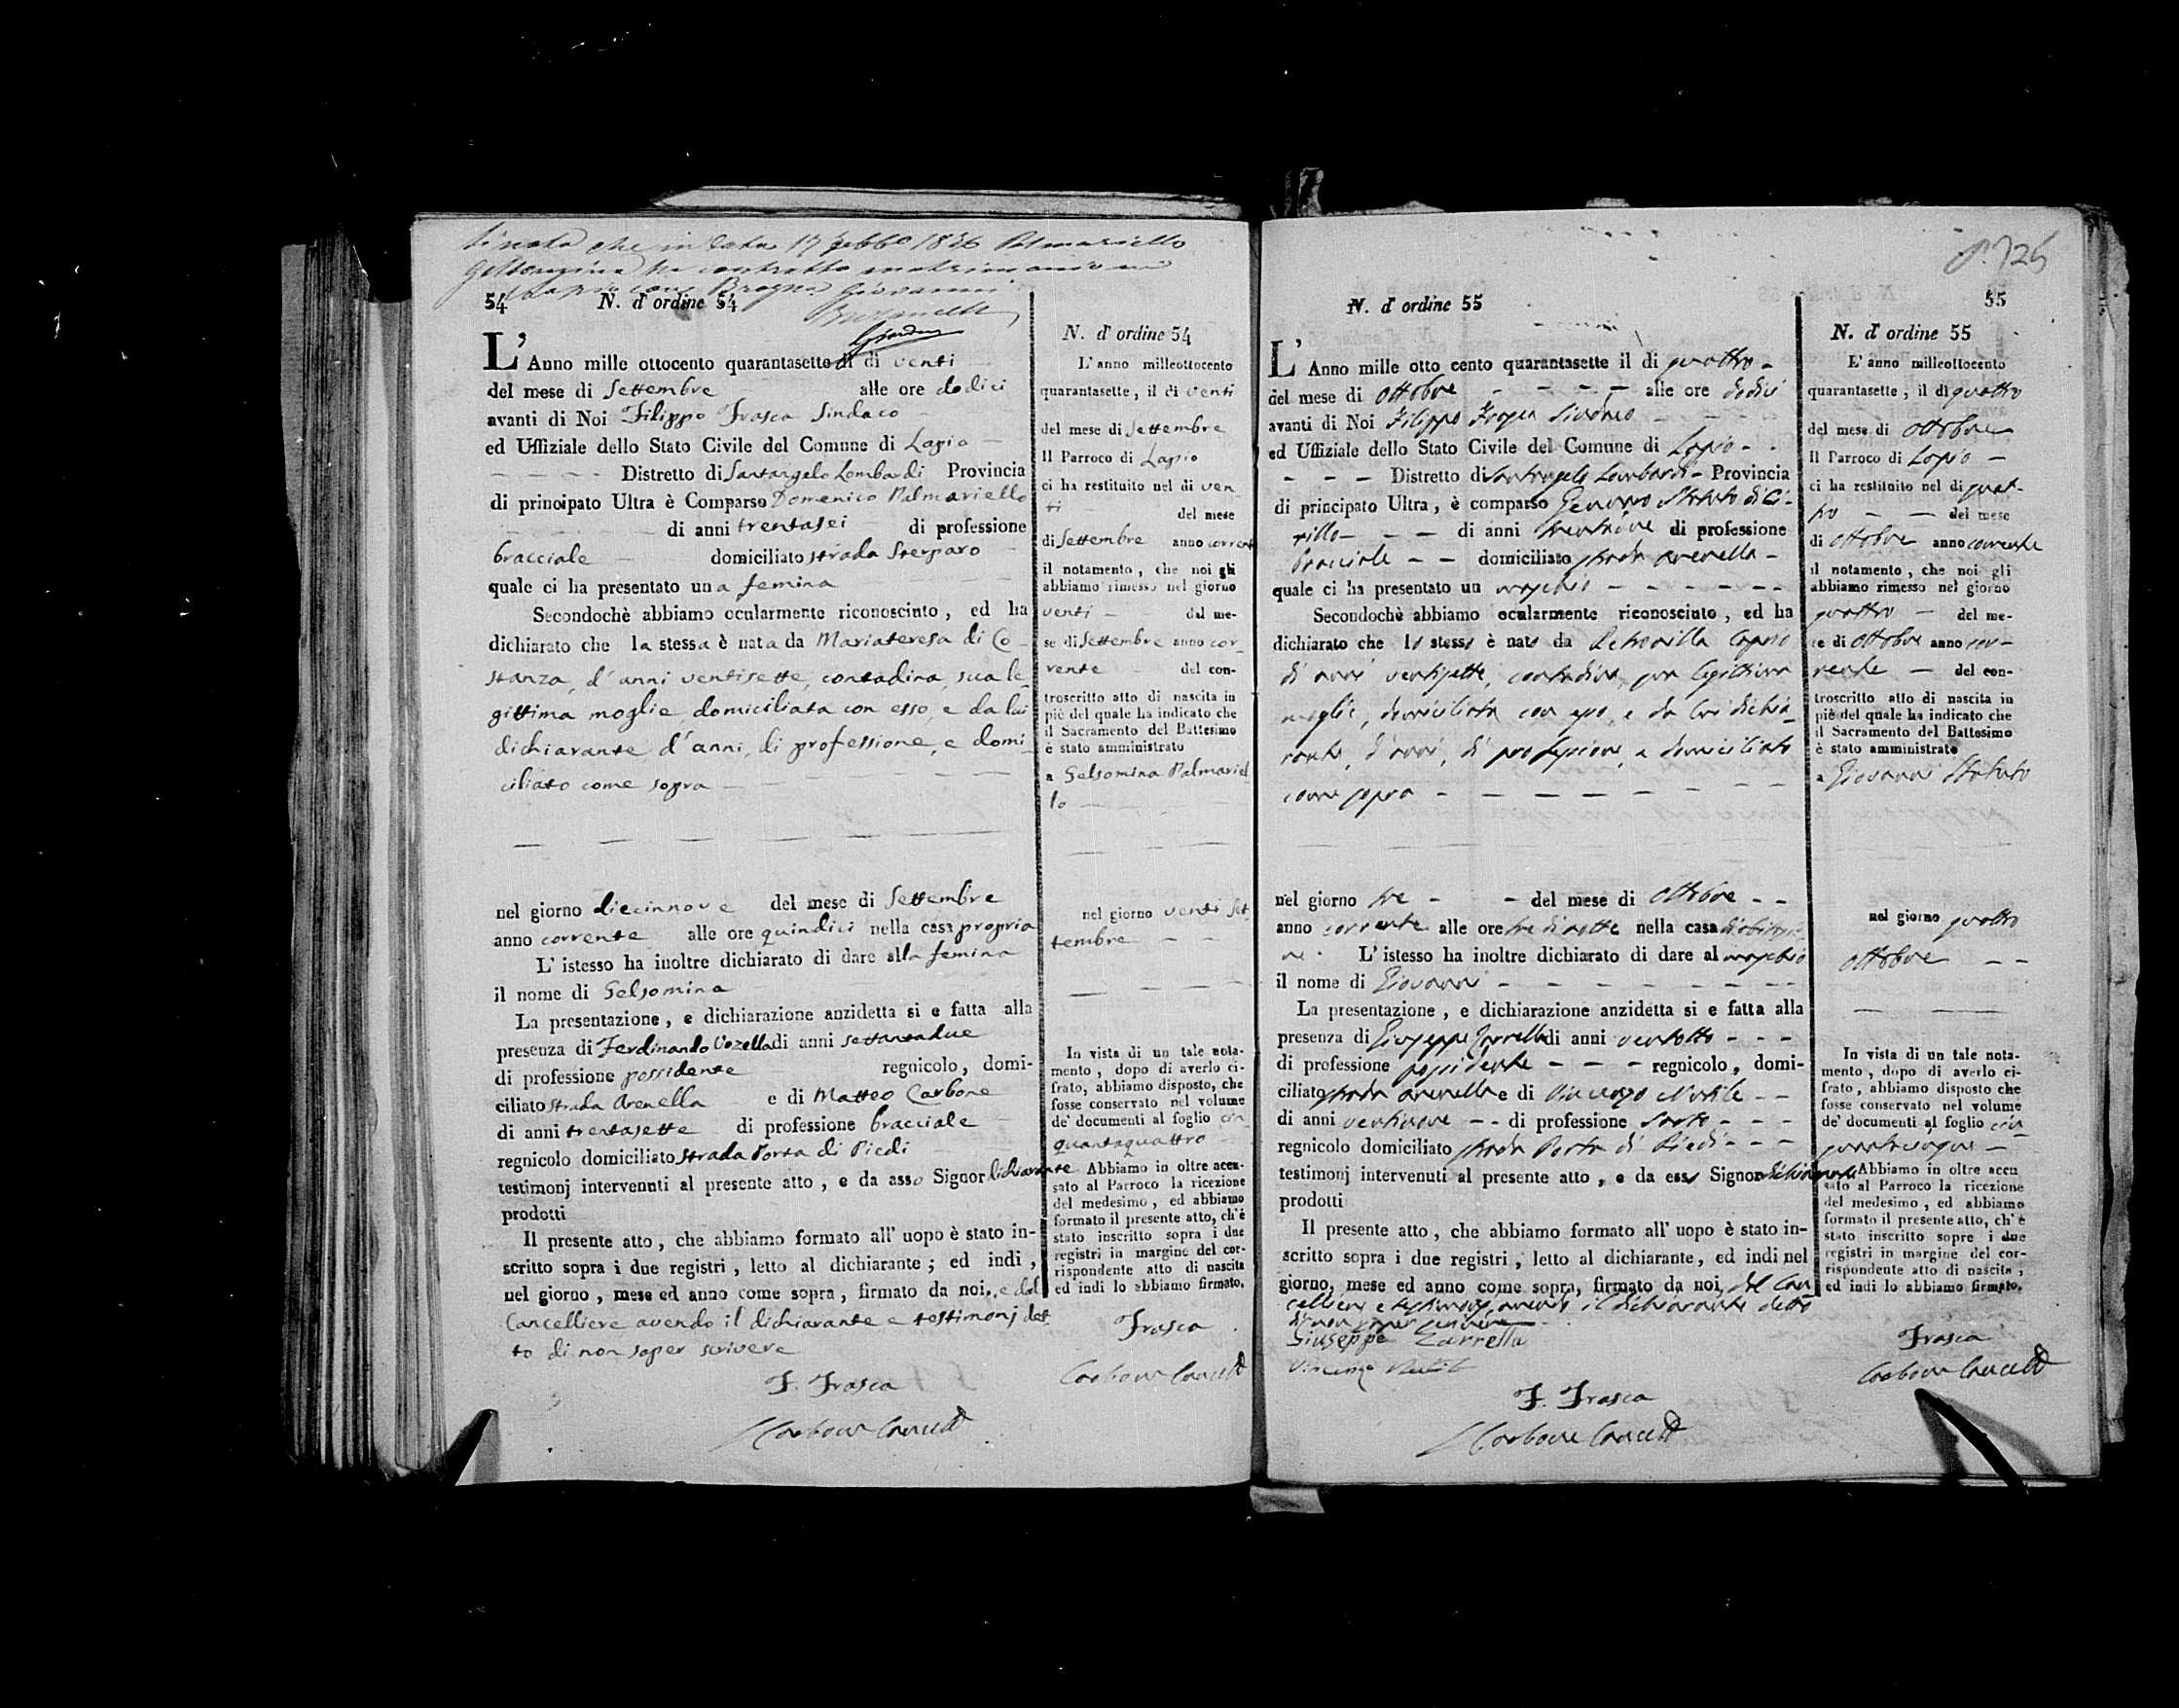 Si nota che in data 17 1876 Palmariello
Gelsomina ha contratto matrimonio in
Lapio con Brogna Giovanni
54 N. d'ordine 54
L'Anno mille ottocento quarantasette il di venti
del mese di Settembre alle ore dodici
avanti di Noi Filippo Frasca Sindaco
ed Uffiziale dello Stato Civile del Comune di Lapio
Distretto di Santangelo Lombardi Provincia
di principato Ultra è Comparso Domenico Palmariello
di anni trentasei di professione
bracciale domiciliato strada Sterparo
quale ci ha presentato una femina
Secondochè abbiamo ocularmente riconosciuto, ed ha
dichiarato che la stessa è nata da Mariateresa di Co-
stanza, d'anni ventisette, contadina, sua le-
gittima moglie, domiciliata con esso, e da lui
dichiarante d'anni, di professione, e domi-
ciliato come sopra
nel giorno diecinnove del mese di Settembre
anno corrente alle ore quindici nella casa propria
L'istesso ha inoltre dichiarato di dare alla femina
il nome di Gelsomina
La presentazione, e dichiarazione anzidetta si e fatta alla
presenza di Ferdinando Vozella di anni settantadue
di professione possidente regnicolo, domi-
ciliato strada Arenella e di Matteo Carbone
di anni trentasette di professione bracciale
regnicolo domiciliato strada Porta di Piedi
testimonj intervenuti al presente atto, e da asso Signor dichiarante
prodotti
Il presente atto, che abbiamo formato all'uopo è stato in-
scritto sopra i due registri, letto al dichiarante; ed indi,
nel giorno, mese ed anno come sopra, firmato da noi, e dal
Cancelliere avendo il dichiarante e testimonj det-
to di non saper scrivere
F. Frasca
Carbone Cancell
N. d'ordine 54
L'anno milleottocento
quarantasette, il di venti
del mese di Settembre
Il Parroco di Lapio
ci ha restituito nel di ven
ti del mese
di Settembre anno corrente
il notamento, che noi gli
abbiamo rimesso nel giorno
venti - del me-
se di Settembre anno cor-
rente del con-
troscritto atto di nascita in
piè del quale ha indicato che
il Sacramento del Battesimo
è stato amministrato
a Gelsomina Palmariel
lo
nel giorno venti Set
tembre
In vista di un tale nota-
mento, dopo di averlo ci-
frato, abbiamo disposto, che
fosse conservato nel volume
de' documenti al foglio cin
quantaquattro
Abbiamo in oltre accu-
sato al Parroco la ricezione
del medesimo, ed abbiamo
formato il presente atto, ch'è
stato inscritto sopra i due
registri in margine del cor-
rispondente atto di nascita
ed indi lo abbiamo firmato.
Frasca
Carbone Cancell
N. d'ordine 55
L'Anno mille otto cento quarantasette il di quattro
del mese di Ottobre alle ore dodici
avanti di Noi Filippo Frasca Sindaco
ed Uffiziale dello Stato Civile del Comune di Lapio
Distretto di Santangelo Lombardi Provincia
di principato Ultra, è comparso Gennaro Statuto di Ci-
rillo di anni trentanove di professione
bracciale domiciliato strada arenella
quale ci ha presentato un maschio
Secondochè abbiamo ocularmente riconosciuto, ed ha
dichiarato che lo stesso è nato da Petronilla
di anni ventisette, contadina, sua legittima
moglie, domiciliata con esso, e da lui dichia-
rante, d'anni, di professione, e domiciliato
come sopra
nel giorno tre del mese di Ottobre
anno corrente alle ore tre di notte nella casa di abitazio-
ne. L'istesso ha inoltre dichiarato di dare al maschio
il nome di Giovanni
La presentazione, e dichiarazione anzidetta si e fatta alla
presenza di Giuseppe Zarrella di anni ventotto
di professione possidente regnicolo, domi-
ciliato strada arenella e di Vincenzo
di anni ventinove di professione Sarto
regnicolo domiciliato strada Porta di Piedi
testimonj intervenuti al presente atto, e da esso Signor dichiarante
prodotti
Il presente atto, che abbiamo formato all'uopo è stato in-
scritto sopra i due registri, letto al dichiarante, ed indi nel
giorno, mese ed anno come sopra, firmato da noi, dal Can
celliere e testimonj, avendo il dichiarante detto
di non saper scrivere
Giuseppe Zarrella
Vincenzo
F. Frasca
Carbone Cancell
55
N. d'ordine 55
L'anno milleottocento
quarantasette, il dì quattro
del mese di Ottobre
Il Parroco di Lapio
ci ha restituito nel di quat-
tro del mese
di Ottobre anno corrente
il notamento, che noi gli
abbiamo rimesso nel giorno
quattro del me-
se di Ottobre anno cor-
rente del con-
troscritto atto di nascita in
piè del quale ha indicato che
il Sacramento del Battesimo
è stato amministrato
a Giovanni Statuto
nel giorno quattro
ottobre
In vista di un tale nota-
mento, dopo di averlo ci-
frato, abbiamo disposto che
fosse conservato nel volume
de' documenti al foglio cin
quantacinque
Abbiamo in oltre accu
sato al Parroco la ricezione
del medesimo, ed abbiamo
formato il presente atto, ch'è
stato inscritto sopre i due
registri in margine del cor-
rispondente atto di nascita,
ed indi lo abbiamo firmato.
Frasca
Carbone Cancell